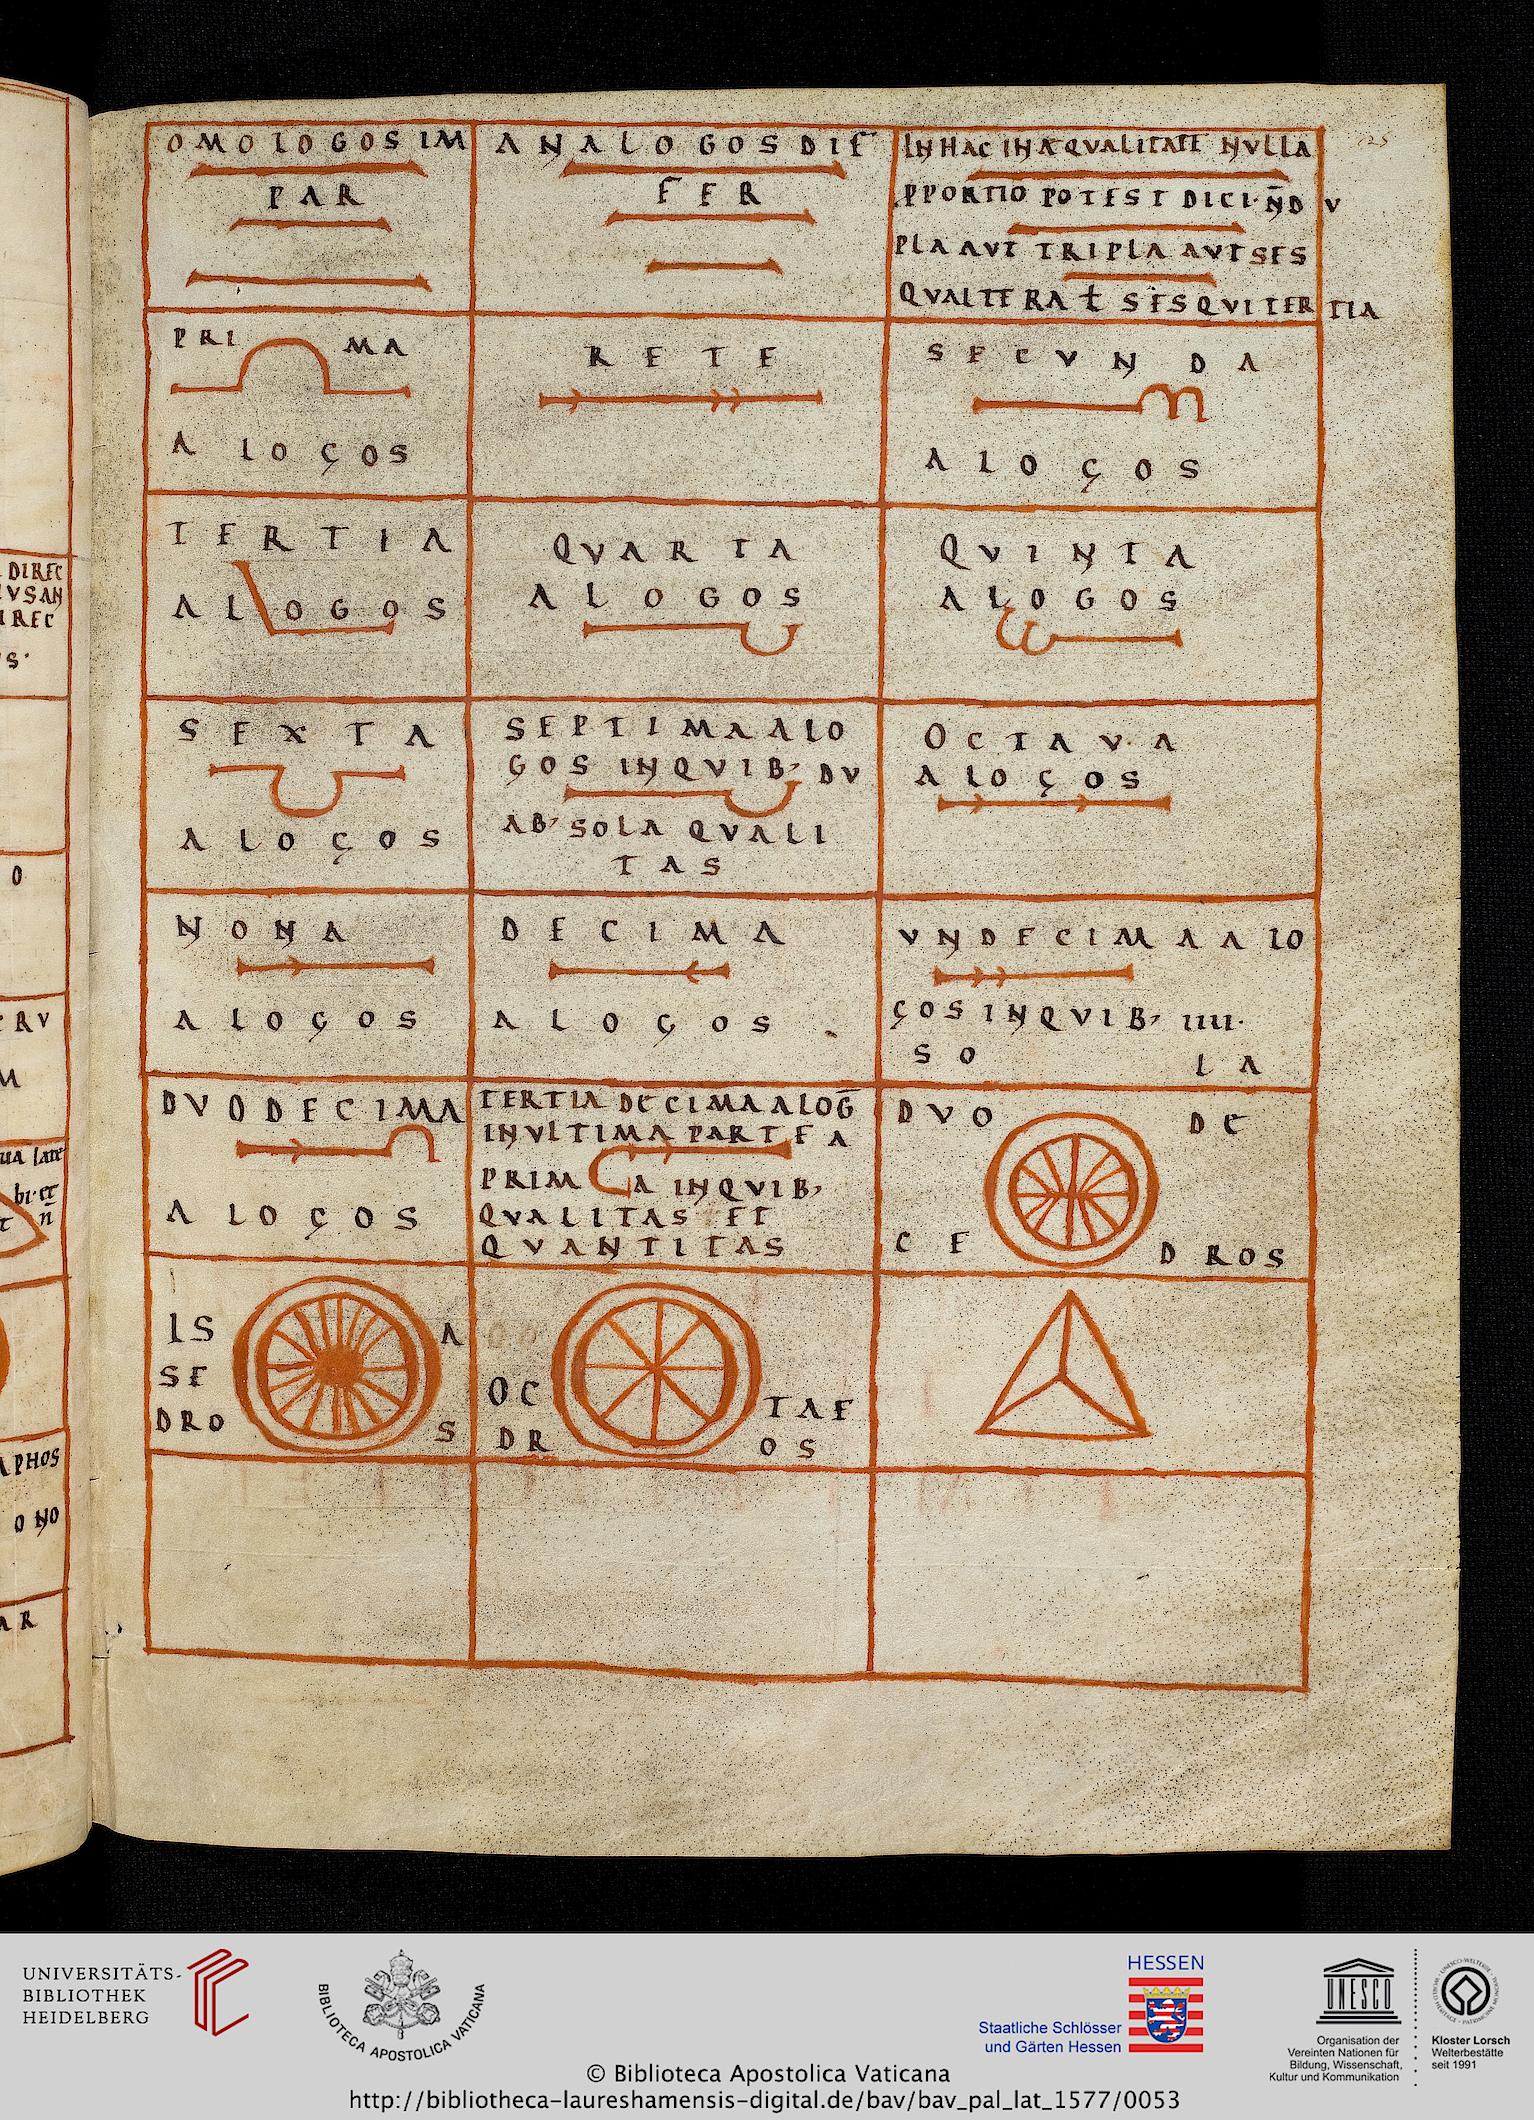 125
OMOLOGOS IM
PAR
ANALOGOS DIF
FER
IN HAC INÆQVALITATE NVLLA
PPORTIO POTEST DICI· N̄ DV
PLA AVT TRIPLA AVT SES
QVALTERA ł SESQVITERTIA
PRI MA
ALOGOS
RETE
SECVNDA
ALOGOS
TERTIA
ALOGOS
QVARTA
ALOGOS
QVINTA
ALOGOS
SEXTA
ALOGOS
SEPTIMA ALO
GOS IN QVIB, DV
AB, SOLA QVALI
TAS
OCTAVA
ALOGOS
NONA
ALOGOS
DECIMA
ALOGOS
VNDECIMA ALO
GOS IN QVIB, IIII·
SO LA
DVODECIMA
ALOGOS
TERTIA DECIMA ALOḠ
IN VLTIMA PARTE A
PRIMA IN QVIB,
QVALITAS ET
QVANTITAS
DVO DE
CE DROS
IS A
SE
DRO S
OC TAE
DR OS
DIREC
VSAN
IREC
S·
O
RV
M
ua late
bi· et
n
APHOS
ONO
AR
UNIVERSITÄTS-
BIBLIOTHEK
HEIDELBERG
BIBLIOTECA APOSTOLICA VATICANA
HESSEN
Staatliche Schlösser
und Gärten Hessen
UNESCO
Organisation der
Vereinten Nationen für
Bildung, Wissenschaft,
Kultur und Kommunikation
Kloster Lorsch
Welterbestätte
seit 1991
© Biblioteca Apostolica Vaticana
http://bibliotheca-laureshamensis-digital.de/bav/bav_pal_lat_1577/0053